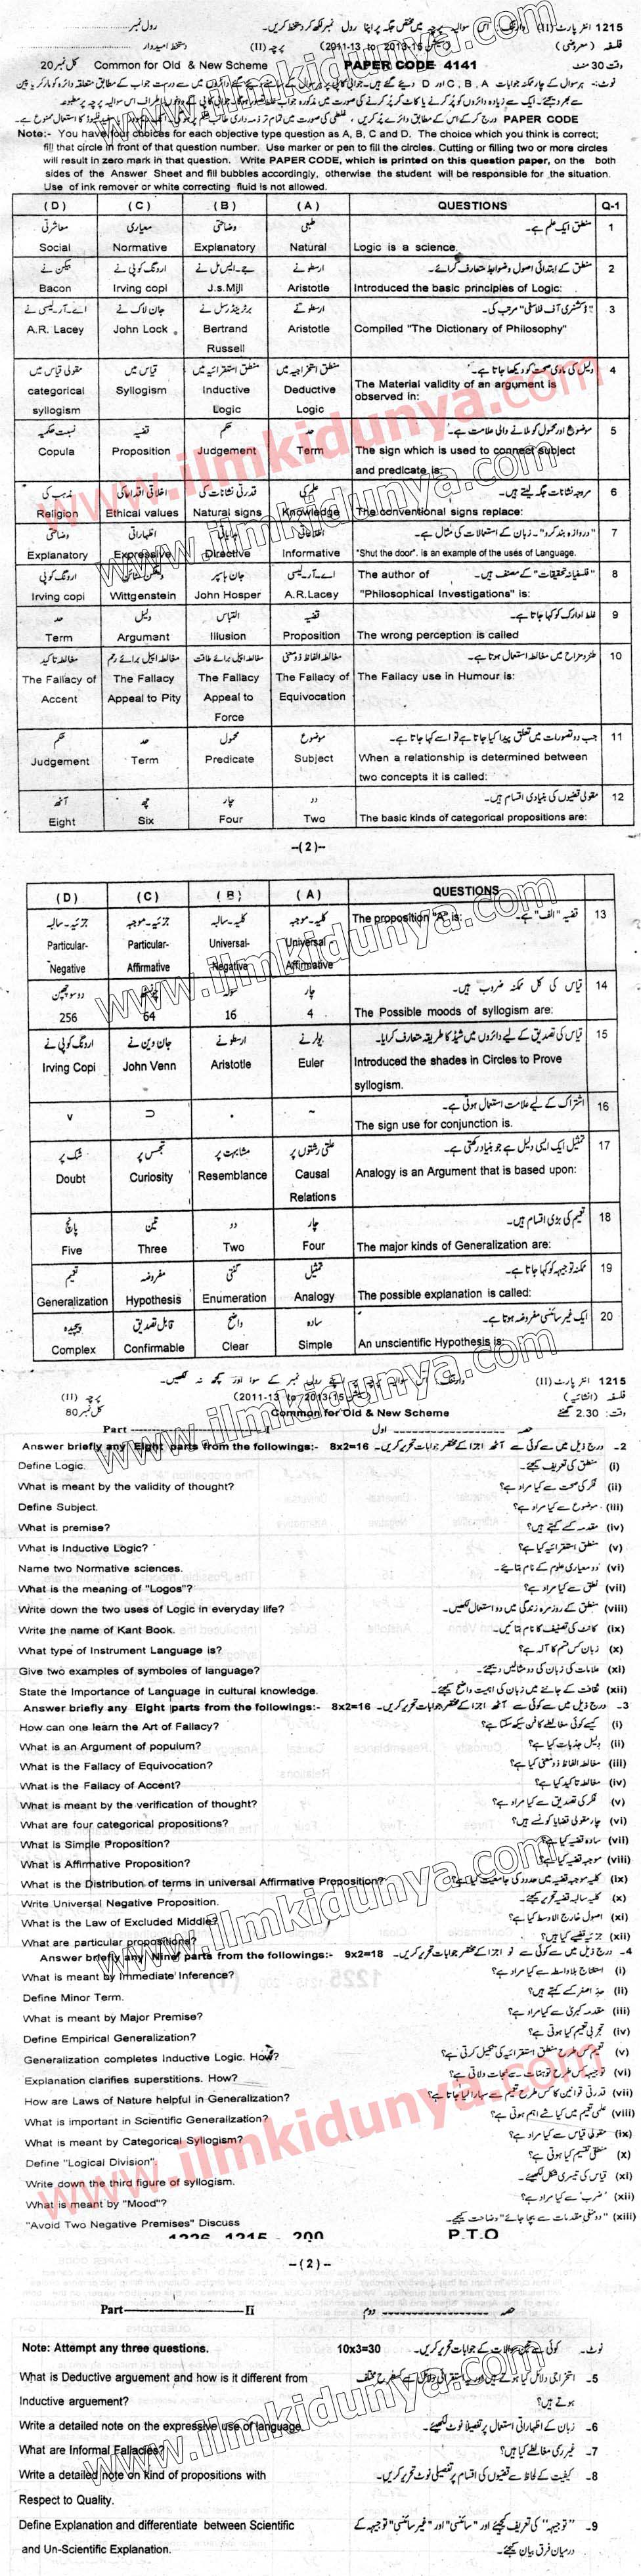 1215 انٹر پارٹ (II) وارننگ۔ اس سوالیہ پرچہ میں مختص جگہ پر اپنا رول نمبر لکھ کر دستخط کریں۔ رول نمبر
فلسفہ (معروضی) (سیشن 15-2013 to 13-2011) پرچہ (II) دستخط امیدوار
وقت 30 منٹ PAPER CODE 4141 Common for Old & New Scheme کل نمبر 20
PAPER CODE
Note:- You have four choices for each objective type question as A, B, C and D. The choice which you think is correct;
fill that circle in front of that question number. Use marker or pen to fill the circles. Cutting or filling two or more circles
will result in zero mark in that question. Write PAPER CODE, which is printed on this question paper, on the both
sides of the Answer Sheet and fill bubbles accordingly, otherwise the student will be responsible for the situation.
Use of ink remover or white correcting fluid is not allowed.
( D ) ( C ) ( B ) ( A ) QUESTIONS Q-1
معاشرتی معیاری وضاحتی طبعی منطق ایک علم ہے۔ 1
Social Normative Explanatory Natural Logic is a science.
بیکن نے ارونگ کوپی نے جے۔ایس مل نے ارسطو نے منطق کے ابتدائی اصول وضوابط متعارف کرائے۔ 2
Bacon Irving copi J.s.Mill Aristotle Introduced the basic principles of Logic:
اے۔آر۔لیسی نے جان لاک نے برٹرینڈرسل نے ارسطو نے "ڈکشنری آف فلاسفی" مرتب کی۔ 3
A.R. Lacey John Lock Bertrand Russell Aristotle Compiled "The Dictionary of Philosophy"
مقولی قیاس میں قیاس میں منطق استقرائیہ میں منطق استخراجیہ میں دلیل کی مادی صحت کو دیکھا جاتا ہے۔ 4
categorical syllogism Syllogism Inductive Logic Deductive Logic The Material validity of an argument is observed in:
نسبت حکمیہ قضیہ حکم حد موضوع اور محمول کو ملانے والی علامت ہے۔ 5
Copula Proposition Judgement Term The sign which is used to connect subject and predicate is:
مذہب کی اخلاقی اقدار کی قدرتی نشانات کی علم کی مروجہ نشانات جگہ لیتے ہیں۔ 6
Religion Ethical values Natural signs Knowledge The conventional signs replace:
وضاحتی اظہاراتی ہدایاتی اطلاعاتی "دروازہ بند کرو"۔ زبان کے استعمالات کی مثال ہے۔ 7
Explanatory Expressive Directive Informative "Shut the door". is an example of the uses of Language.
ارونگ کوپی جان ہاسپر اے۔آر۔لیسی "فلسفیانہ تحقیقات" کے مصنف ہیں۔ The author of 8
Irving copi Wittgenstein John Hosper A.R.Lacey "Philosophical Investigations" is:
حد دلیل التباس قضیہ غلط ادراک کو کہا جاتا ہے۔ 9
Term Argumant Illusion Proposition The wrong perception is called
مغالطہ تاکید مغالطہ اپیل برائے رحم مغالطہ اپیل برائے طاقت مغالطہ الفاظ ذومعنی طنز و مزاح میں مغالطہ استعمال ہوتا ہے۔ 10
The Fallacy of Accent The Fallacy Appeal to Pity The Fallacy Appeal to Force The Fallacy of Equivocation The Fallacy use in Humour is:
حکم حد محمول موضوع جب دو تصورات میں تعلق پیدا کیا جاتا ہے تو اسے کہا جاتا ہے۔ 11
Judgement Term Predicate Subject When a relationship is determined between two concepts it is called:
آٹھ چھ چار دو مقولی قضیوں کی بنیادی اقسام ہیں۔ 12
Eight Six Four Two The basic kinds of categorical propositions are:
--(2)--
( D ) ( C ) ( B ) ( A ) QUESTIONS
جزئیہ۔سالبہ جزئیہ۔موجبہ کلیہ۔سالبہ کلیہ۔موجبہ قضیہ "الف" ہے۔ The proposition "A" is: 13
Particular-Negative Particular-Affirmative Universal-Negative Universal-Affirmative
دوسوچھپن چونسٹھ سولہ چار قیاس کی کل ممکنہ ضروب ہیں۔ 14
256 64 16 4 The Possible moods of syllogism are:
ارونگ کوپی نے جان وین نے ارسطو نے یولر نے قیاس کی تصدیق کے لیے دائروں میں شیڈ کا طریقہ متعارف کرایا۔ 15
Irving Copi John Venn Aristotle Euler Introduced the shades in Circles to Prove syllogism.
v ⊃ . ~ اشتراک کے لیے علامت استعمال ہوتی ہے۔ 16
The sign use for conjunction is.
شک پر تجسس پر مشابہت پر علتی رشتوں پر تمثیل ایک ایسی دلیل ہے جو بنیاد رکھتی ہے۔ 17
Doubt Curiosity Resemblance Causal Relations Analogy is an Argument that is based upon:
پانچ تین دو چار تعمیم کی بڑی اقسام ہیں۔ 18
Five Three Two Four The major kinds of Generalization are:
تعمیم مفروضہ گنتی تمثیل ممکنہ توجیہہ کو کہا جاتا ہے۔ 19
Generalization Hypothesis Enumeration Analogy The possible explanation is called:
پیچیدہ قابل تصدیق واضح سادہ ایک غیر سائنسی مفروضہ ہوتا ہے۔ 20
Complex Confirmable Clear Simple An unscientific Hypothesis is:
1215 انٹر پارٹ (II) وارننگ:۔ اس سوالیہ پرچہ پر اپنے رول نمبر کے سوا اور کچھ نہ لکھیں۔ پرچہ (II)
فلسفہ (انشائیہ) (سیشن 15-2013 to 13-2011)
وقت: 2.30 گھنٹے Common for Old & New Scheme کل نمبر 80
Part ---- I حصہ ---- اول
Answer briefly any Eight parts from the followings:- 8x2=16 درج ذیل میں سے کوئی سے آٹھ اجزا کے مختصر جوابات تحریر کریں۔ 2-
Define Logic. منطق کی تعریف کیجئے۔ (i)
What is meant by the validity of thought? فکر کی صحت سے کیا مراد ہے؟ (ii)
Define Subject. موضوع سے کیا مراد ہے؟ (iii)
What is premise? مقدمہ کسے کہتے ہیں؟ (iv)
What is Inductive Logic? منطق استقرائیہ کیا ہے؟ (v)
Name two Normative sciences. دو معیاری علوم کے نام بتائیے۔ (vi)
What is the meaning of "Logos"? نطق سے کیا مراد ہے؟ (vii)
Write down the two uses of Logic in everyday life? منطق کے روزمرہ زندگی میں دو استعمال لکھیں۔ (viii)
Write the name of Kant Book. کانٹ کی تصنیف کا نام بتائیں۔ (ix)
What type of Instrument Language is? زبان کس قسم کا آلہ ہے؟ (x)
Give two examples of symboles of language? علامات کی زبان کی دو مثالیں دیجئے۔ (xi)
State the Importance of Language in cultural knowledge. ثقافت کے جاننے میں زبان کی اہمیت واضح کیجئے۔ (xii)
Answer briefly any Eight parts from the followings:- 8x2=16 درج ذیل میں سے کوئی سے آٹھ اجزا کے مختصر جوابات تحریر کریں۔ 3-
How can one learn the Art of Fallacy? کیسے کوئی مغالطے کا فن سیکھ سکتا ہے؟ (i)
What is an Argument of populum? دلیل جذبات کیا ہے؟ (ii)
What is the Fallacy of Equivocation? مغالطہ الفاظ ذومعنی کیا ہے؟ (iii)
What is the Fallacy of Accent? مغالطہ تاکید کیا ہے؟ (iv)
What is meant by the verification of thought? فکر کی تصدیق سے کیا مراد ہے؟ (v)
What are four categorical propositions? چار مقولی قضایا کونسے ہیں؟ (vi)
What is Simple Proposition? سادہ قضیہ کیا ہے؟ (vii)
What is Affirmative Proposition? موجبہ قضیہ کیا ہے؟ (viii)
What is the Distribution of terms in universal Affirmative Proposition? کلیہ موجبہ قضیہ میں حدود کی جامعیت کیا ہے؟ (ix)
Write Universal Negative Proposition. کلیہ سالبہ قضیہ تحریر کیجئے۔ (x)
What is the Law of Excluded Middle? اصول خارج الاوسط کیا ہے؟ (xi)
What are particular propositions? جزئیہ قضیے کیا ہیں؟ (xii)
Answer briefly any Nine parts from the followings:- 9x2=18 درج ذیل میں سے کوئی سے نو اجزا کے مختصر جوابات تحریر کریں۔ 4-
What is meant by Immediate Inference? استنتاج بلاواسطہ سے کیا مراد ہے؟ (i)
Define Minor Term. حد اصغر کسے کہتے ہیں؟ (ii)
What is meant by Major Premise? مقدمہ کبریٰ سے کیا مراد ہے؟ (iii)
Define Empirical Generalization? تجربی تعمیم کیا ہوتی ہے؟ (iv)
Generalization completes Inductive Logic. How? تعمیم کس طرح منطق استقرائیہ کی تکمیل کرتی ہے؟ (v)
Explanation clarifies superstitions. How? توجیہہ کس طرح توہمات سے نجات دلاتی ہے؟ (vi)
How are Laws of Nature helpful in Generalization? قدرتی قوانین کا کس طرح تعمیم سے سہارا لیا جاتا ہے؟ (vii)
What is important in Scientific Generalization? علمی تعمیم میں کیا شے اہم ہوتی ہے؟ (viii)
What is meant by Categorical Syllogism? مقولی قیاس سے کیا مراد ہے؟ (ix)
Define "Logical Division". منطقی تقسیم کیا ہوتی ہے؟ (x)
Write down the third figure of syllogism. قیاس کی تیسری شکل لکھیئے۔ (xi)
What is meant by "Mood"? "ضرب" سے کیا مراد ہے؟ (xii)
"Avoid Two Negative Premises" Discuss "دو منفی مقدمات سے بچا جائے" وضاحت کیجیے۔ (xiii)
1226 1215 - 200 P.T.O
--(2)--
Part ---- II حصہ ---- دوم
Note: Attempt any three questions. 10x3=30 نوٹ۔ کوئی سے تین سوالات کے جوابات تحریر کریں۔
What is Deductive arguement and how is it different from 5- استخراجی دلائل کیا ہوتے ہیں اور یہ استقرائی دلائل سے کس طرح مختلف
Inductive arguement? ہوتے ہیں؟
Write a detailed note on the expressive use of language. زبان کے اظہاراتی استعمال پر تفصیلاً نوٹ لکھیئے۔ 6-
What are Informal Fallacies? غیر رسمی مغالطے کیا ہیں؟ 7-
Write a detailed note on kind of propositions with کیفیت کے لحاظ سے قضیوں کی اقسام پر تفصیلی نوٹ تحریر کریں۔ 8-
Respect to Quality.
Define Explanation and differentiate between Scientific "توجیہہ" کی تعریف کیجئے اور "سائنسی" اور "غیر سائنسی" توجیہہ کے 9-
and Un-Scientific Explanation. درمیان فرق بیان کیجئے۔
www.ilmkidunya.com